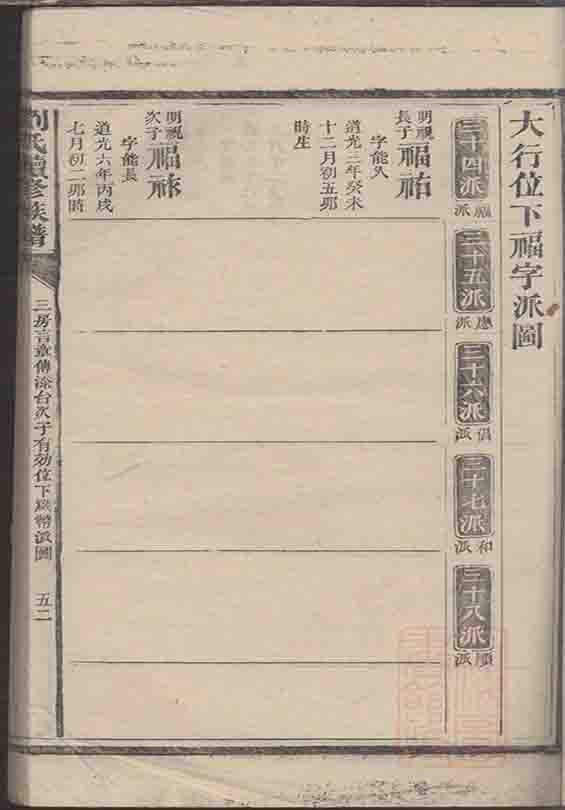 大行位下福字派圖
三十四派
福派
三十五派
應派
三十六派
倡派
三十七派
和派
三十八派
順派
明視
長子福祐
字能久
道光三年癸未
十二月初五卯
時生
明視
次子福祿
字能長
道光六年丙戌
七月初二卯時
劉氏續修族譜
三房言章傳涂台次子有効位下
派圖
五二